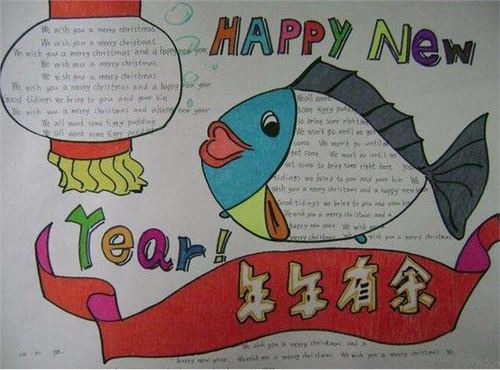 HAPPY New
Year!
年年有余
We wish you a merry christmas
We wish you a merry christmas.
We wish you a merry christmas and a happy new year
We wish you a merry christmas.
We wish you a merry christmas.
We wish you a merry christmas and a happy new year
Good tidings we bring to you and your kin
We wish you a merry christmas and a happy new year
We all want some figgy pudding
We all want some figgy pudding
We all want
some figgy pudding
so bring some right
We won't go until we get
some We won't go until
get some We won't go until we
get some so bring some right here
tidings we bring to you and your kin. We
wish you a merry christmas and a happy new year
Good tidings we bring to you and your
We wish you a merry christmas and a
happy new year. We wish you
merry christmas We wish you a merry christmas
We wish you a merry christmas and a
happy new year. We wish you a merry christmas We wish you a merry